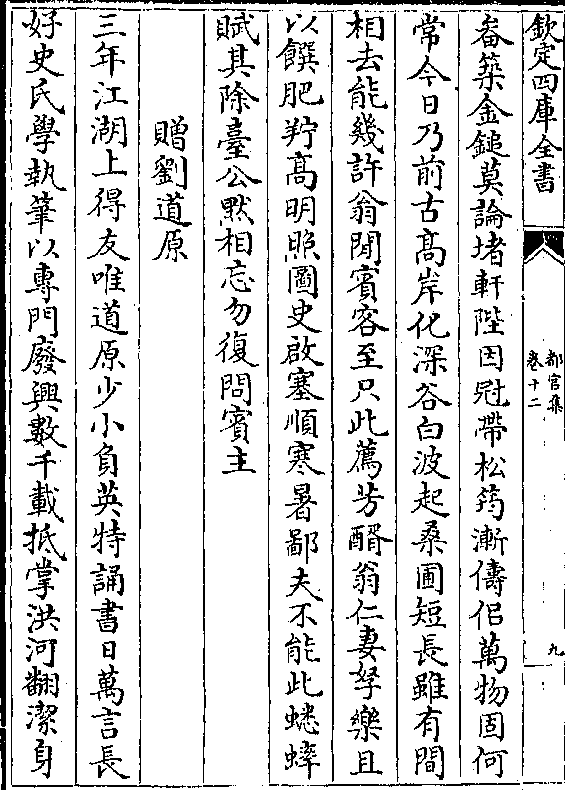 欽定四庫全書
都官集
卷十二
九
畚築金鎚莫論堵軒陛因冠帶松筠漸儔侣萬物固何
常今日乃前古髙岸化深谷白波起桑圃短長雖有間
相去能幾許翁聞賓客至只此薦芳醑翁仁妻孥樂且
以饌肥羜髙明照圖史啟塞順寒暑鄙夫不能此蟋蟀
賦其除臺公黙相忘勿復問賓主
贈劉道原
三年江湖上得友唯道原少小負英特誦書日萬言長
好史氏學執筆以專門廢興數千載抵掌洪河翻潔身